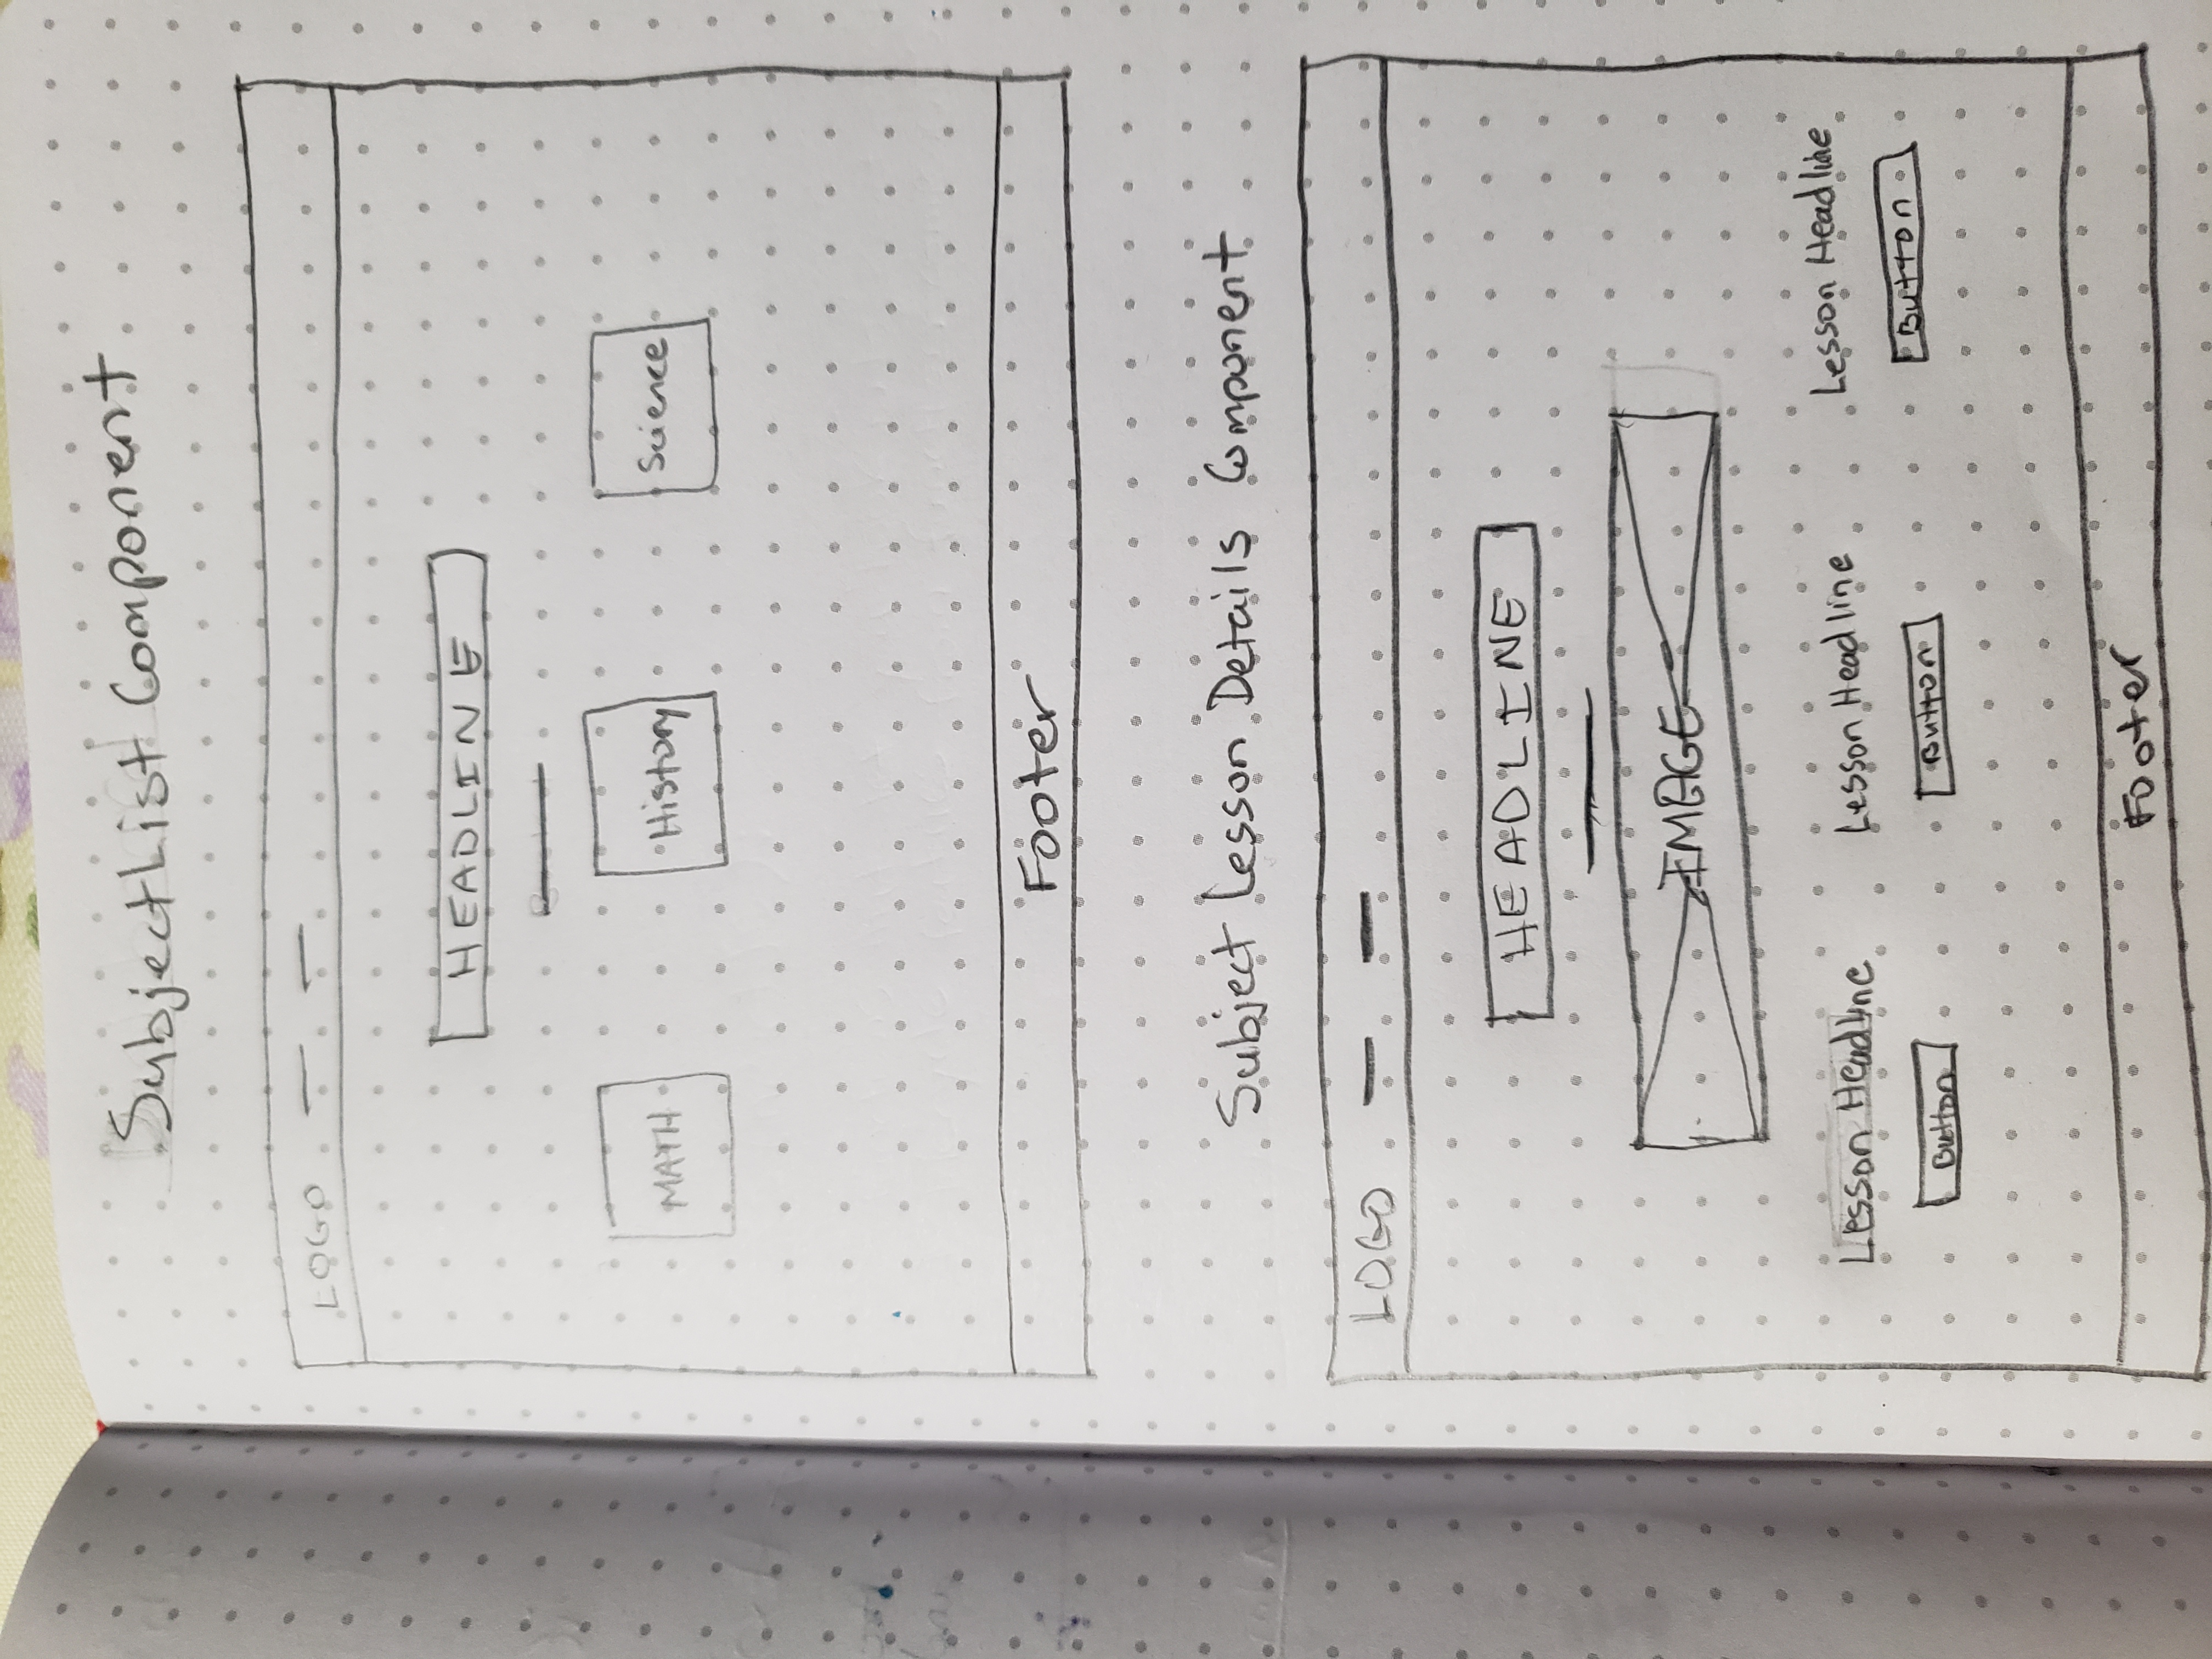 SubjectList Component
LOGO
HEADLINE
MATH
History
Science
Footer
Subject Lesson Details Component
LOGO
HEADLINE
IMAGE
Lesson Headline
Lesson Headline
Lesson Headline
Button
Button
Button
Footer